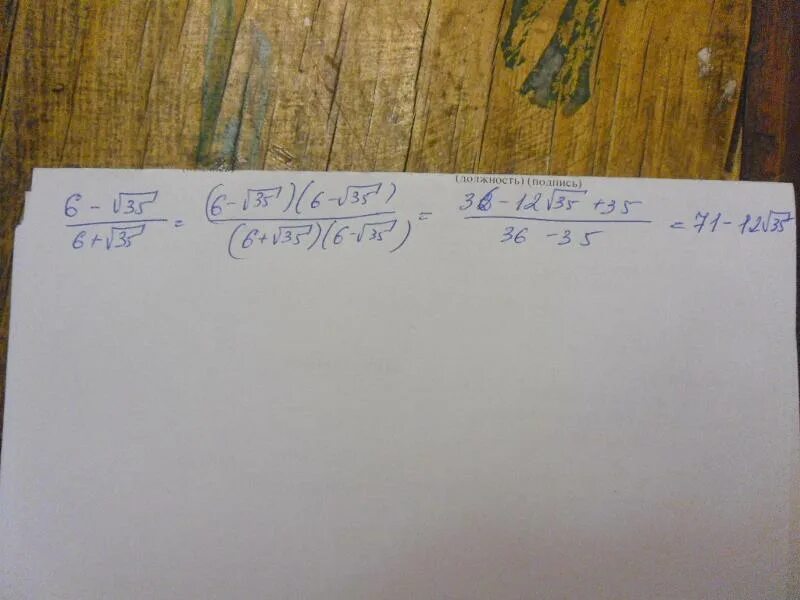 (должность) (подпись)
(6-√35)/(6+√35) = ((6-√35)(6-√35))/((6+√35)(6-√35)) = (36-12√35+35)/(36-35) = 71-12√35